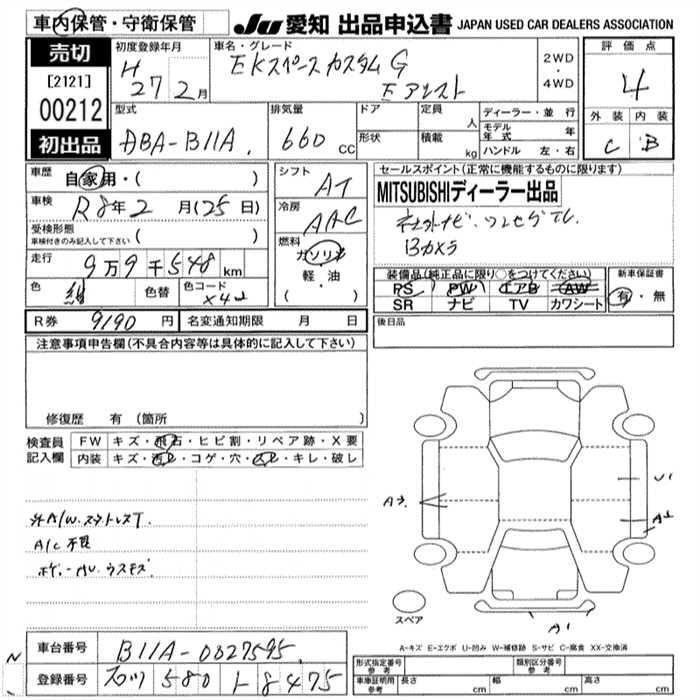 車内保管・守衛保管
JU 愛知 出品申込書 JAPAN USED CAR DEALERS ASSOCIATION
売切
[2121]
00212
初出品
初度登録年月
H 27 2月
車名・グレード
EKスペースカスタム G
Eアシスト
2WD
・
4WD
評価点
4
外装 内装
C B
型式
DBA-B11A
排気量
660 CC
ドア
形状
定員 人
積載 kg
ディーラー・並行
モデル年式 年
ハンドル 左・右
車歴 自家用・( )
車検 R8年2月(25日)
受検形態
車検付きのみ記入して下さい ( )
走行 9万9千548km
色 紺 色替 色コード X42
シフト AT
冷房 AAC
燃料
ガソリン
軽・油
( )
セールスポイント(正常に機能するものに限ります)
MITSUBISHIディーラー出品
社外ナビ・ワンセグTV.
Bカメラ
装備品(純正品に限り○をつけてください)
PS PW エアB AW
SR ナビ TV カワシート
新車保証書
有・無
R券 9190円 名変通知期限 月 日
後日品
注意事項申告欄(不具合内容等は具体的に記入して下さい)
修復歴 有 (箇所 )
検査員記入欄
FW キズ・飛石・ヒビ割・リペア跡・X要
内装 キズ・汚レ・コゲ・穴・凹ミ・キレ・破レ
外A/W.スタットレスT.
A/C不良
ボディーAU.ウスキズ
A3
U1
A2
A1
スペア
A-キズ E-エクボ U-凹み W-補修跡 S-サビ C-腐食 XX-交換済
車台番号 B11A-0027595
登録番号 580 8475
形式指定番号
参考
類別区分番号
参考
車庫証明用
参考
長さ cm 幅 cm 高さ cm